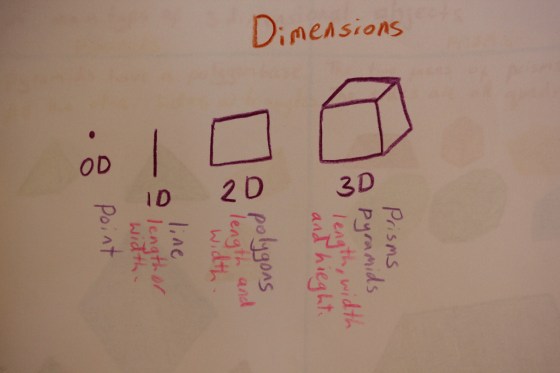 Dimensions
0D
1D
2D
3D
Point
line
length or
width.
polygons
length and
width.
Prisms
pyramids
length, width
and hieght.